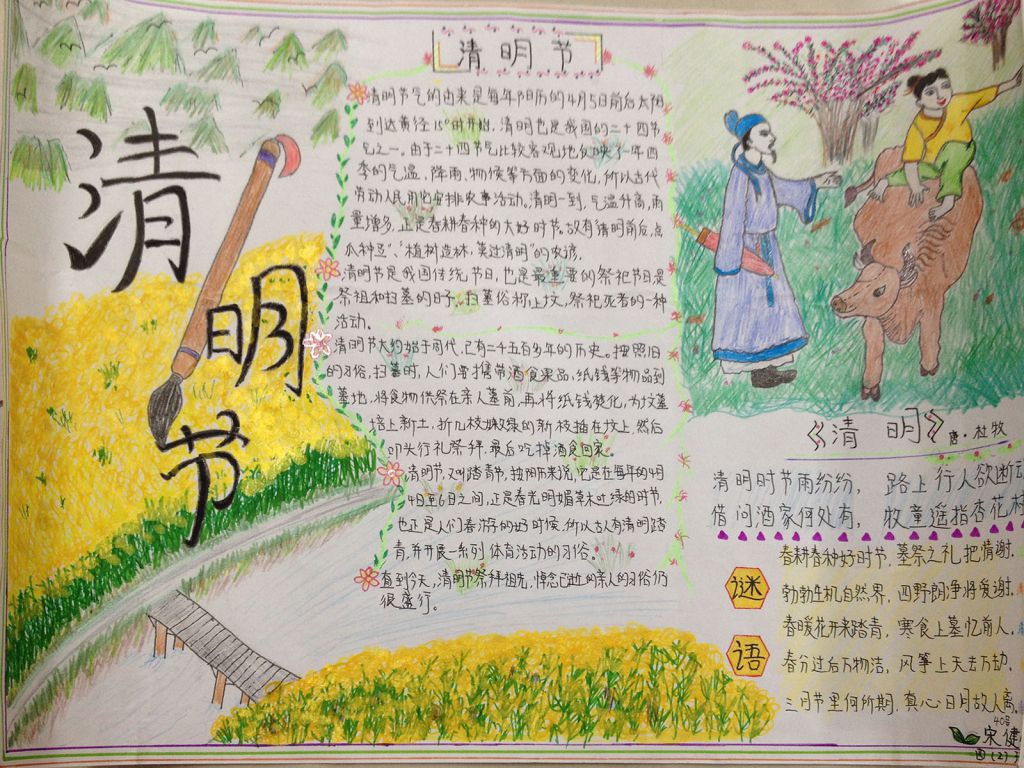 清明节
清明节
清明节气的由来是每年阳历的4月5日前后太阳
到达黄径15°时开始，清明也是我国的二十四节
气之一。由于二十四节气比较客观地反映了一年四
季的气温、降雨、物候等方面的变化，所以古代
劳动人民用它安排农事活动。清明一到，气温升高，雨
量增多，正是春耕春种的大好时节。故有清明前后，点
瓜种豆”、“植树造林，莫过清明”的农谚。
清明节是我国传统节日，也是最重要的祭祀节日是
祭祖和扫墓的日子。扫墓俗称上坟，祭祀死者的一种
活动。
清明节大约始于周代，已有二千五百多年的历史。按照旧
的习俗，扫墓时，人们要携带酒食果品，纸钱等物品到
墓地，将食物供祭在亲人墓前，再将纸钱焚化，为坟墓
培上新土，折几枝嫩绿的新枝插在坟上，然后
叩头行礼祭拜，最后吃掉酒食回家。
清明节，又叫踏青节，按阳历来说，它是在每年的4月
4日至6日之间，正是春光明媚草木吐绿的时节，
也正是人们春游的好时候，所以古人有清明踏
青，并开展一系列体育活动的习俗。
直到今天，清明节祭拜祖先，悼念已逝的亲人的习俗仍
很盛行。
《清 明》 唐·杜牧
清明时节雨纷纷， 路上行人欲断
借问酒家何处有， 牧童遥指杏花村
谜语
春耕春种好时节，墓祭之礼把情谢。
勃勃生机自然界，四野朗净将爱谢。
春暖花开来踏青，寒食上墓忆前人。
春分过后万物洁，风筝上天去万劫。
三月节里何所期，真心日月故人离。
40号
宋健